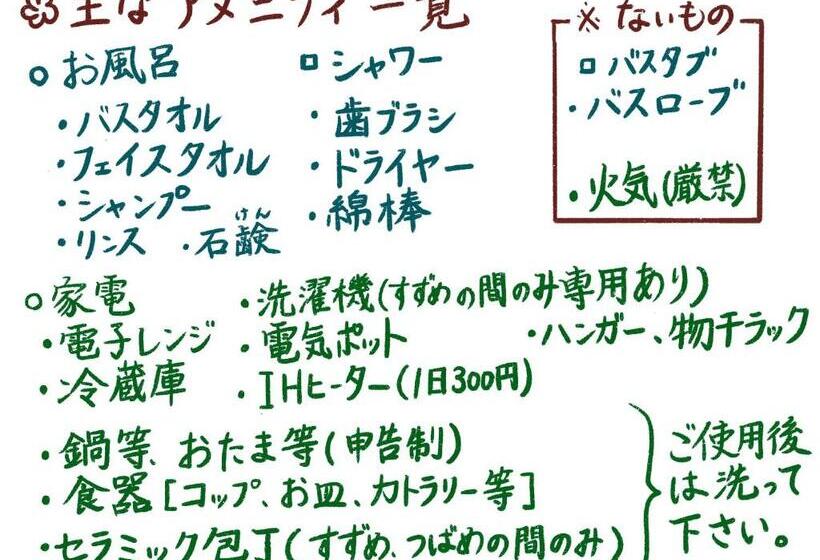 主なアメニティ一覧
※ないもの
○お風呂
□シャワー
□バスタブ
・バスタオル
・歯ブラシ
・バスローブ
・フェイスタオル
・ドライヤー
・火気(厳禁)
・シャンプー
・綿棒
・リンス ・石鹸
けん
○家電
・洗濯機(すずめの間のみ専用あり)
・電子レンジ
・電気ポット
・ハンガー、物干ラック
・冷蔵庫
・IHヒーター(1日300円)
・鍋等、おたま等(申告制)
・食器[コップ、お皿、カトラリー等]
・セラミック包丁(すずめ、つばめの間のみ)
ご使用後
は洗って
下さい。